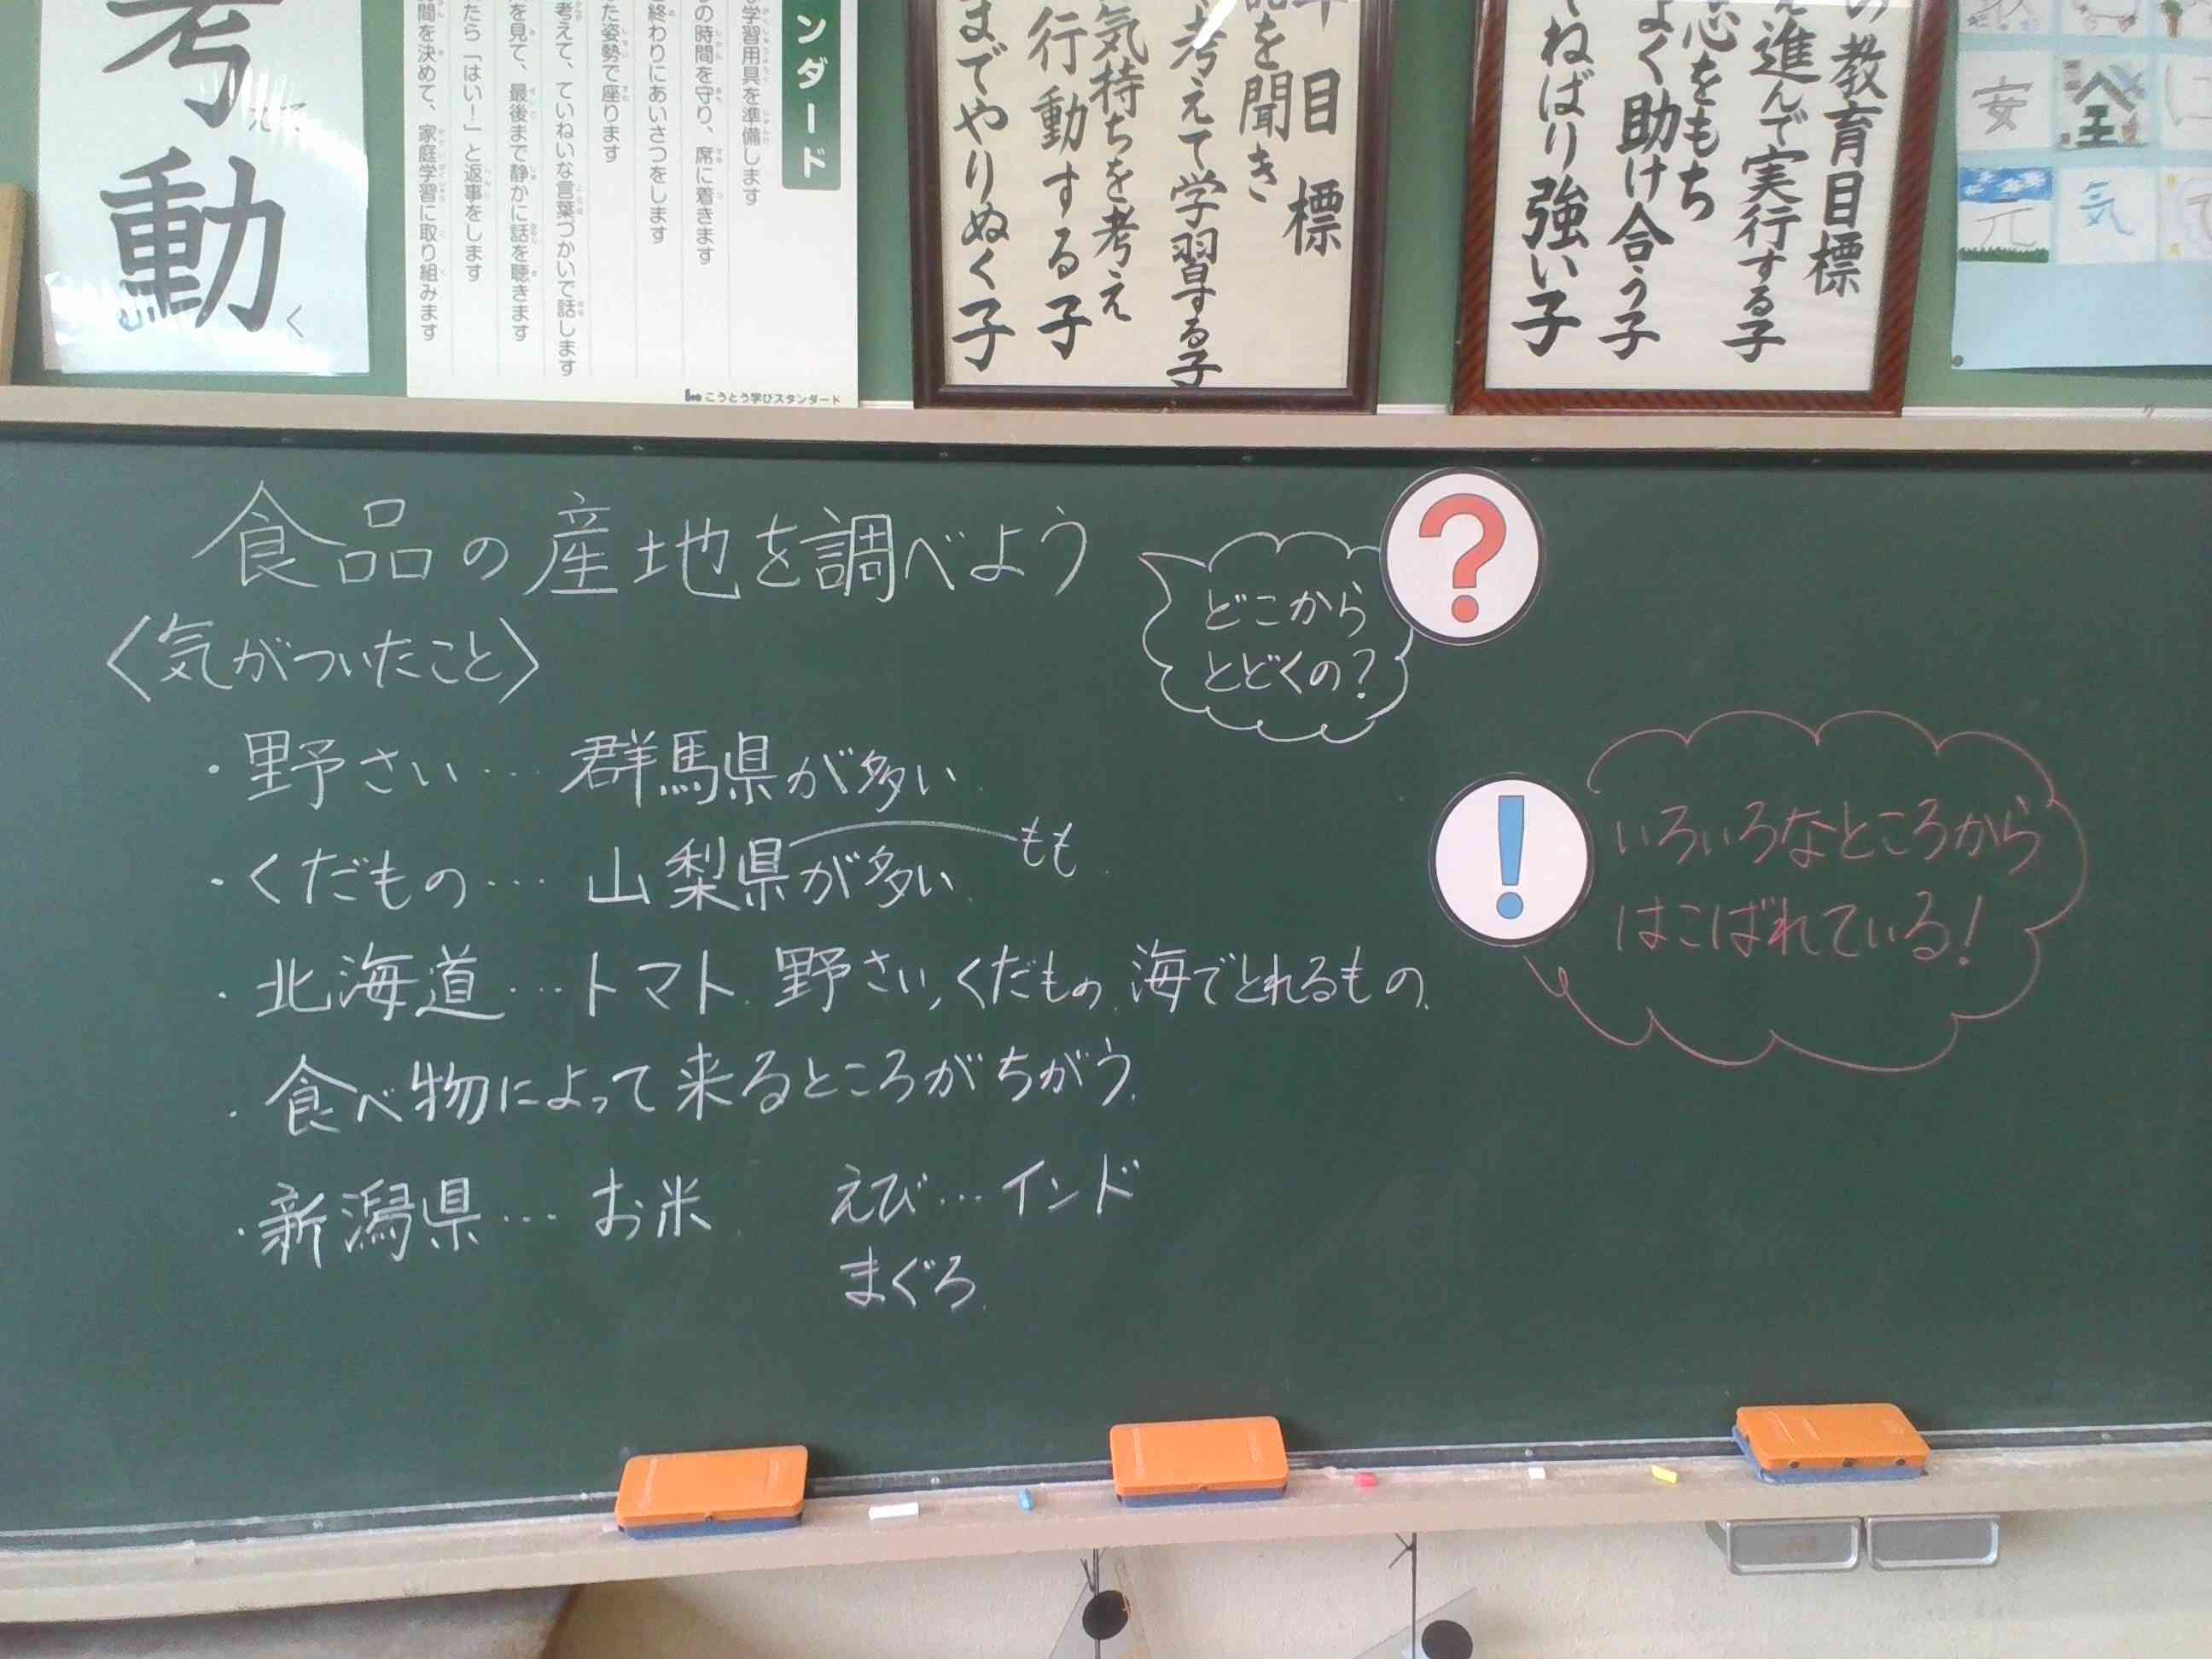 考
えて
動
く
ンダード
学習用具を準備します
の時間を守り、席に着きます
終わりにあいさつをします
た姿勢で座ります
考えて、ていねいな言葉づかいで話します
を見て、最後まで静かに話を聴きます
たら「はい!」と返事をします
間を決めて、家庭学習に取り組みます
こうとう学びスタンダード
目標
を聞き
考えて学習する子
気持ちを考え
行動する子
までやりぬく子
の教育目標
進んで実行する子
心をもち
よく助け合う子
ねばり強い子
安
全
元
気
食品の産地を調べよう
どこから
とどくの?
?
〈気がついたこと〉
・野さい… 群馬県が多い
・くだもの… 山梨県が多い もも
・北海道…トマト、野さい、くだもの、海でとれるもの、
・食べ物によって来るところがちがう。
・新潟県… お米 えび…インド
まぐろ
!
いろいろなところから
はこばれている!